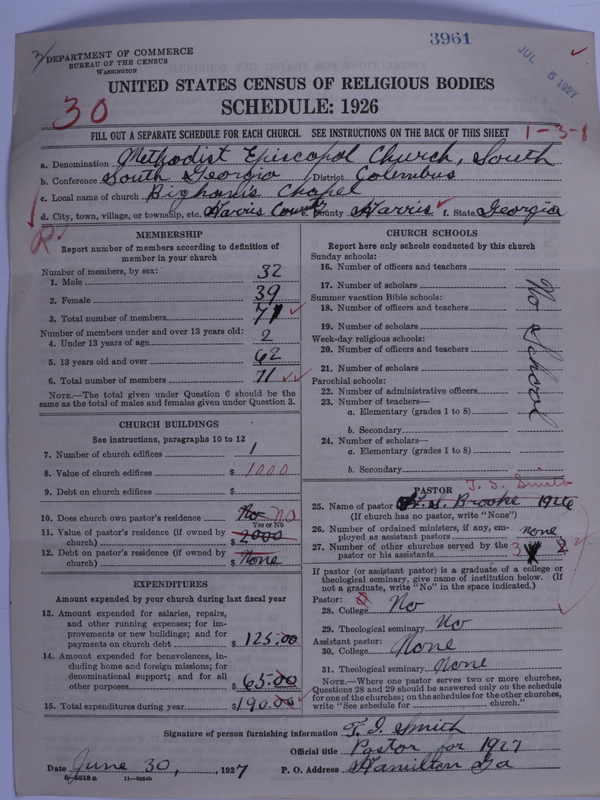 3961
JUL 5 1927
DEPARTMENT OF COMMERCE
BUREAU OF THE CENSUS
WASHINGTON
UNITED STATES CENSUS OF RELIGIOUS BODIES
SCHEDULE: 1926
30
FILL OUT A SEPARATE SCHEDULE FOR EACH CHURCH. SEE INSTRUCTIONS ON THE BACK OF THIS SHEET
1-3-8
a. Denomination Methodist Episcopal Church, South
b. Conference South Georgia District Colombus
c. Local name of church Bigham's Chapel
d. City, town, village, or township, etc. Harris County County Harris f. State Georgia
MEMBERSHIP
Report number of members according to definition of member in your church
Number of members, by sex:
1. Male 32
2. Female 39
3. Total number of members 71
Number of members under and over 13 years old:
4. Under 13 years of age 2
5. 13 years old and over 62
6. Total number of members 71
NOTE.—The total given under Question 6 should be the same as the total of males and females given under Question 3.
CHURCH BUILDINGS
See instructions, paragraphs 10 to 12
7. Number of church edifices 1
8. Value of church edifices $ 1000
9. Debt on church edifices $
10. Does church own pastor's residence No no
Yes or No
11. Value of pastor's residence (if owned by church) $ 2000
12. Debt on pastor's residence (if owned by church) $ None
EXPENDITURES
Amount expended by your church during last fiscal year
13. Amount expended for salaries, repairs, and other running expenses; for improvements or new buildings; and for payments on church debt $ 125.00
14. Amount expended for benevolences, including home and foreign missions; for denominational support; and for all other purposes $ 65.00
15. Total expenditures during year $ 190.00
CHURCH SCHOOLS
Report here only schools conducted by this church
Sunday schools:
16. Number of officers and teachers
17. Number of scholars
Summer vacation Bible schools:
18. Number of officers and teachers
19. Number of scholars
Week-day religious schools:
20. Number of officers and teachers
21. Number of scholars
Parochial schools:
22. Number of administrative officers
23. Number of teachers—
a. Elementary (grades 1 to 8)
b. Secondary
24. Number of scholars—
a. Elementary (grades 1 to 8)
b. Secondary
No School
PASTOR
T. I. Smith
25. Name of pastor Brooke 1926
(If church has no pastor, write "None")
26. Number of ordained ministers, if any, employed as assistant pastors none
27. Number of other churches served by the pastor or his assistants 3 2
If pastor (or assistant pastor) is a graduate of a college or theological seminary, give name of institution below. (If not a graduate, write "No" in the space indicated.)
Pastor:
28. College No
29. Theological seminary No
Assistant pastor:
30. College None
31. Theological seminary None
NOTE.—Where one pastor serves two or more churches, Questions 28 and 29 should be answered only on the schedule for one of the churches; on the schedules for the other churches, write "See schedule for church."
Signature of person furnishing information T. I. Smith
Official title Pastor for 1927
Date June 30, 1927 P. O. Address Hamilton Ga